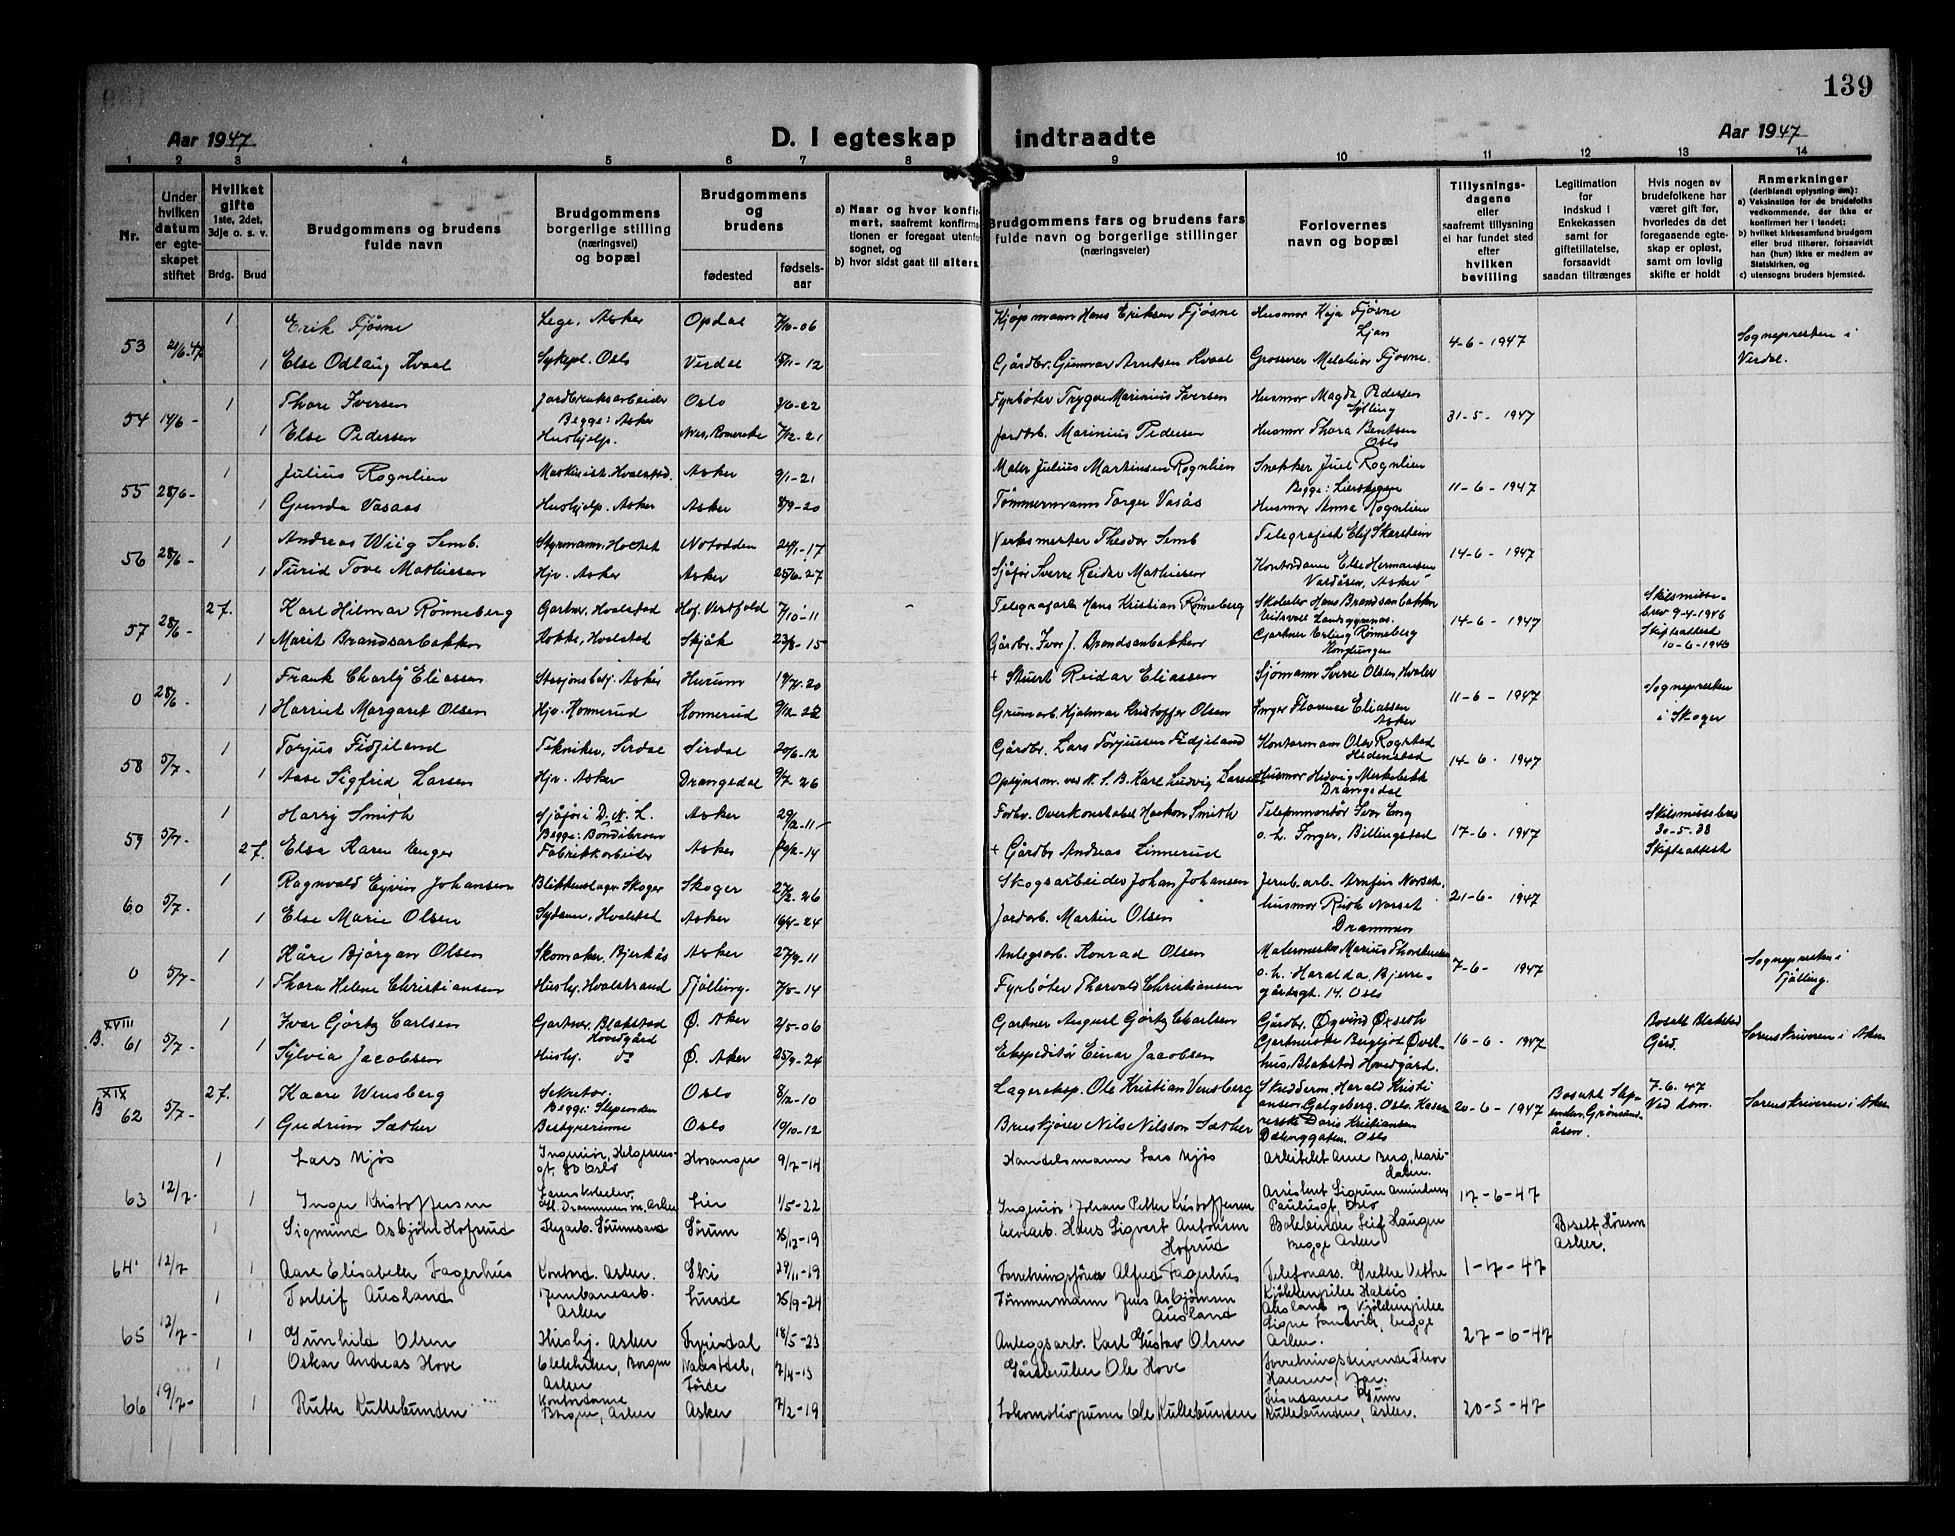 139
Aar 1947
D. I egteskap indtraadte
Aar 1947
1 2 3 4 5 6 7 8 9 10 11 12 13 14
Nr.
Under hvilken datum er egteskapet stiftet
Hvilket gifte 1ste, 2det, 3dje o. s. v.
Brdg. Brud
Brudgommens og brudens fulde navn
Brudgommens borgerlige stilling (næringsvei) og bopæl
Brudgommens og brudens
fødested fødselsaar
a) Naar og hvor konfirmert, saafremt konfirmationen er foregaat utenfor sognet, og
b) hvor sidst gaat til alters
Brudgommens fars og brudens fars fulde navn og borgerlige stillinger (næringsveier)
Forlovernes navn og bopæl
Tillysningsdagene eller saafremt tillysning ei har fundet sted efter hvilken bevilling
Legitimation for Indskud i Enkekassen samt for giftetillatelse, forsaavidt saadan tiltrænges
Hvis nogen av brudefolkene har været gift før, hvorledes da det foregaaende egteskap er opløst, samt om lovlig skifte er holdt
Anmerkninger (deriblandt oplysning om):
a) Vaksination for de brudefolks vedkommende, der ikke er konfirmert her i landet;
b) hvilket kirkesamfund brudgom eller brud tilhører, forsaavidt han (hun) ikke er medlem av Statskirken, og
c) utensogns bruders hjemsted.
1 Erik Fjøsne Lege, Asker Opdal 7/10-06 Kjøpmann Hans Eriksen Fjøsne Husmor Kaja Fjøsne Ljan
53 21/6-47 4-6-1947 Sognepresten i Verdal.
1 Else Odlaug Kvaal Sykepl. Oslo Verdal 15/11-12 Gårdbr. Gunnar Arntsen Kvaal Grosserer Melchior Fjøsne.
1 Thore Iversen Jordbruksarbeider Oslo 3/6-22 Fyrbøter Trygve Marinius Iversen Husmor Magda Pedersen Sylling
54 14/6- Begge: Asker 31-5-1947
1 Else Pedersen Hushjelp. Nes, Romerike 7/12-21 Jordbrb. Marinius Pedersen Husmor Thora Bentsen Oslo
1 Julius Rognlien Maskinist. Hvalstad. Asker 9/1-21 Maler Julius Martinsen Rognlien Snekker Juel Rognlien
55 28/6- Begge: Lierskogen 11-6-1947
1 Gunda Vasaas Hushjelp. Asker Asker 8/9-20 Tømmermann Torger Vasås Husmor Anna Rognlien
1 Andreas Wiig Semb. Styrmann, Holtet Notodden 24/1-17 Verksmester Theodor Semb Telegrafist Elif Skarstein
56 28/6- 14-6-1947
1 Turid Tove Mathiesen Hjv. Asker Asker 25/6-27 Sjåfør Sverre Reidar Mathiesen Kontordame Else Hermansen Vardåsen, Asker
2 f. Karl Hilmar Rønneberg Gartner, Hvalstad Hof, Vestfold 7/10-11 Telegrafarb. Hans Kristian Rønneberg Skoleelev Hans Brandsarbakken Eidsvoll Landsgymnas. Skilsmissebrev 9-4-1946
57 28/6- 14-6-1947 Skifteattest 10-6-1946
1 Marit Brandsarbakken Kokke, Hvalstad Skjåk 23/8-15 Gårdbr. Ivar J. Brandsarbakken Gartner Erling Rønneberg Konglungen
1 Frank Charly Eliassen Stasjonsbetj. Asker Hurum 19/11-20 + Stuert Reidar Eliassen Sjømann Sverre Olsen, Hvaler
0 28/6- 11-6-1947 Sognepresten i Skoger
1 Harriet Margaret Olsen Hjv. Konnerud Konnerud 9/12-22 Grunnarb. Hjalmar Kristoffer Olsen Inger Florence Eliassen Asker
1 Torjus Fidjeland Tekniker, Sirdal Sirdal 20/6-12 Gårdbr. Lars Torjussen Fidjeland Kontormann Olav Rogstad Hedenstad
58 5/7- 14-6-1947
1 Aase Sigfrid Larsen Hjv. Asker Drangedal 9/7-26 Opsynsm. ved N.S.B. Karl Ludvig Larsen Husmor Hedvig Merkebekk Drangedal
1 Harry Smith Sjåfør i D.N.L. Asker 29/12-11 Forhv. Overkonstabel Haakon Smith Telefonmontør Ivar Eng Skilsmissebrev 30-5-38
59 5/7- Begge: Bondibroen 17-6-1947 Skifteattest
2 f. Else Karen Unger Fabrikkarbeider Asker 20/2-14 + Gårdbr. Andreas Linnerud o.h. Inger, Billingstad
1 Ragnvald Eyvin Johansen Blikkenslager, Skoger Skoger 27/2-26 Skogsarbeider Johan Johansen Jernb.arb. Arnfin Norset,
60 5/7- 21-6-1947
1 Else Marie Olsen Sydame, Hvalstad Asker 16/4-24 Jordarb. Martin Olsen husmor Ruth Norset Drammen
1 Kåre Bjørgan Olsen Skomaker, Bjerkås Asker 27/9-11 Anlegsarb. Konrad Olsen Malermester Marius Thorkelsen
0 5/7- 7-6-1947 Sognepresten i Tjølling.
1 Thora Helene Christiansen Hushj. Hvalstrand Tjølling 7/5-14 Fyrbøter Thorvald Christiansen o.h. Haralda, Bjerregårdsgt. 14. Oslo
B. XVIII 1 Ivar Gjørtz Carlsen Gartner, Blakstad Hovedgård Ø. Aker 2/5-06 Gartner August Gjørtz Carlsen Gårdbr. Øyvind Øxseth Bosatt Blakstad Gård.
61 5/7- 16-6-1947 Sorenskriveren i Asker
1 Sylvia Jacobsen Hushj. do Ø. Aker 25/9-24 Ekspeditør Einar Jacobsen Gartnerske Bergljot Øverhus, Blakstad Hovedgård.
B XIX 2 f. Kaare Wensberg Sekretær, Oslo 8/12-10 Lagereksp. Ole Kristian Vensberg Skredderm. Harald Kristiansen Galgeberg. Oslo. 7.6.47
62 5/7- Begge: Slependen 20-6-1947 Bosatt Slependen, Grønsundåsen. Ved dom. Sorenskriveren i Asker
1 Gudrun Sæther Bestyrerinne Oslo 19/10-12 Bruskjører Nils Nilsson Sæther Kasererske Doris Kristiansen Dælenggaten. Oslo
1 Lars Mjøs Ingeniør, Helgesensgt. 83 Oslo Hosanger 9/7-14 Handelsmann Lars Mjøs Arkitekt Arne Berg, Maridalen.
63 12/7- 17-6-47
1 Inger Kristoffersen Gl. Drammensv., Asker Lier 1/5-22 Ingeniør Johan Petter Kristoffersen Assistent Sigrun Amundsen Paulusgt. Oslo
1 Sigmund Asbjørn Hofsrud Flyarb. Sørumsand Sørum 25/12-19 Elviarb. Hans Sigvart Antonsen Hofsrud Bokbinder Leif Haugen Begge Asker Bosatt, Hønsrn Asker.
64 12/7 1-7-47
1 Aase Elisabeth Fagerhus Kontord. Asker. Ski 29/11-19 Forretningsfører Alfred Fagerhus Telefonass. Grethe Vethe
1 Torleif Ausland Jernbanearb. Asker Lunde 25/9-24 Tømmermann Jens Asbjørnsen Ausland Kjøkkenpike Haldis Ausland og Kjøkkenpike
65 12/7- 27-6-47
1 Gunhild Olsen Hushj. Asker Fyresdal 18/5-23 Anleggsarb. Karl Gustav Olsen Signe Sandvik, begge Asker.
1 Oskar Andreas Hove Elektriker, Borgen Asker Naustdal, Førde 7/4-15 Gårdbruker Ole Hove Forretningsdrivende Thor Hansen, Jar.
66 19/7- 20-5-47
1 Ruth Kullebunden Kontordame Borgen, Asker Asker 7/2-19 Lokomotivpusser Ole Kullebunden Frisørdame Gunn Kullebunden, Asker.